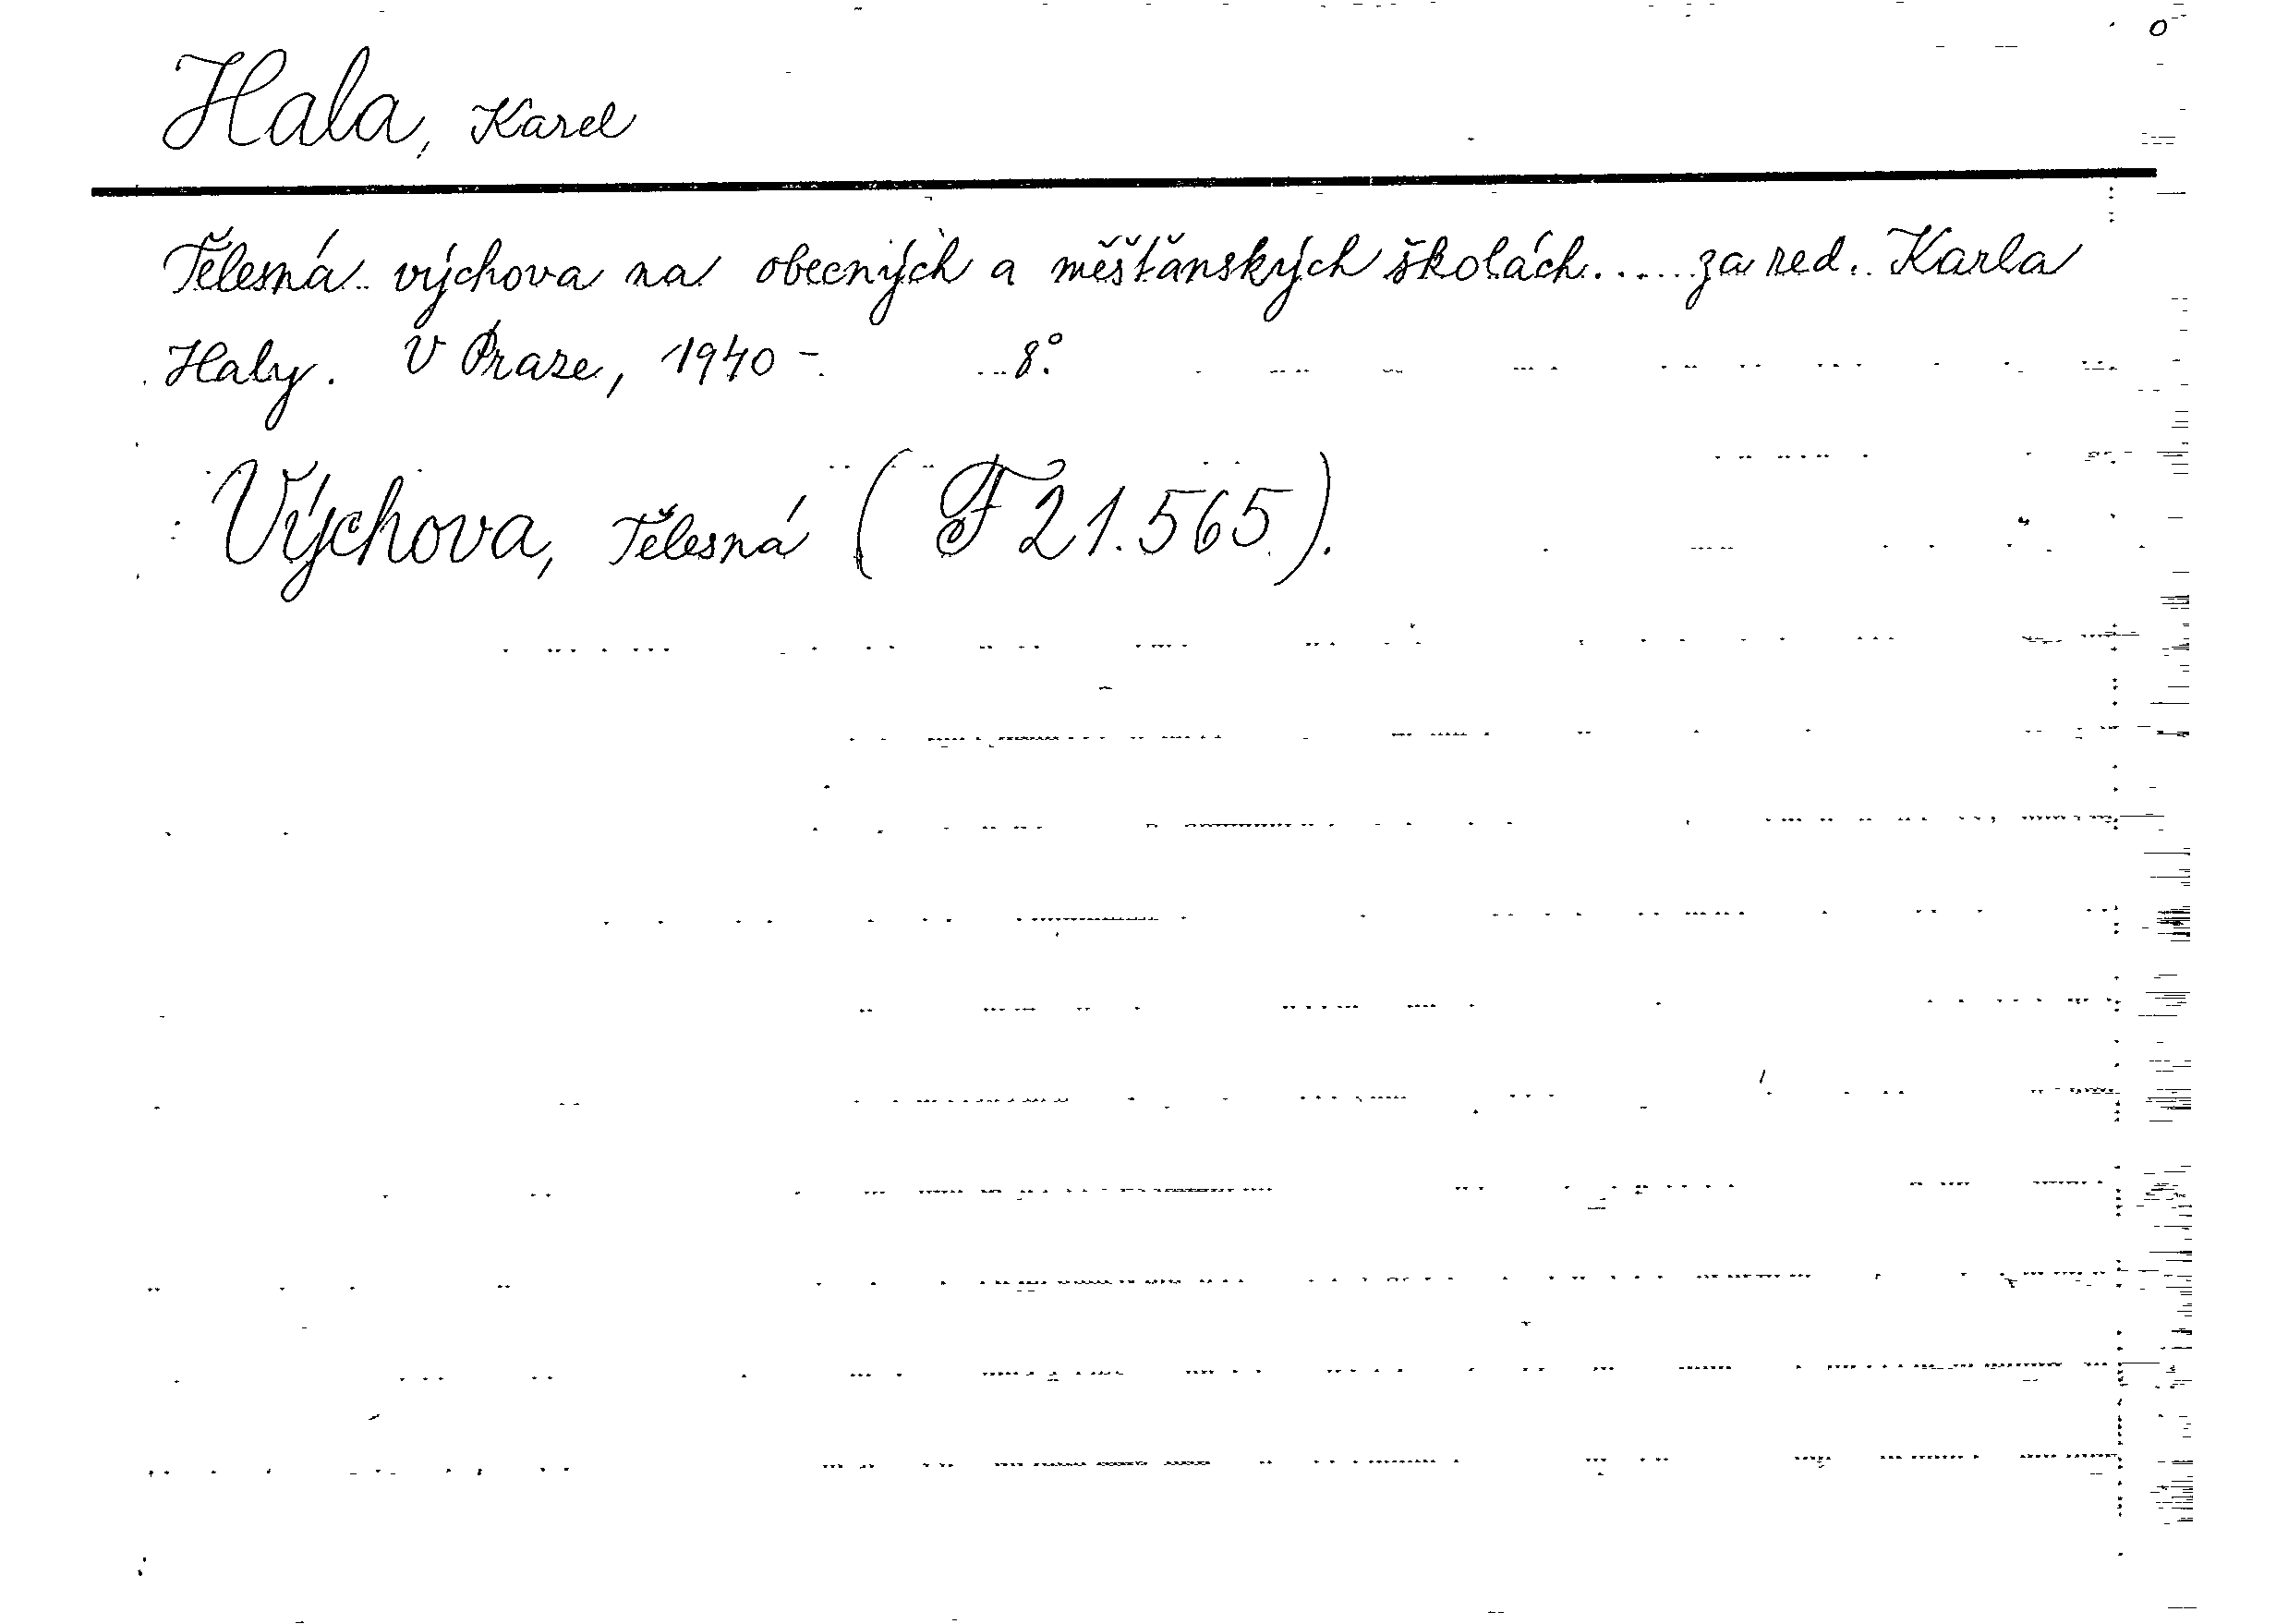 Hala, Karel
Tělesná výchova na obecných a měšťanských školách..... za red. Karla
Haly. V Praze, 1940 -. 8°.
Výchova, Tělesná (F 21.565).